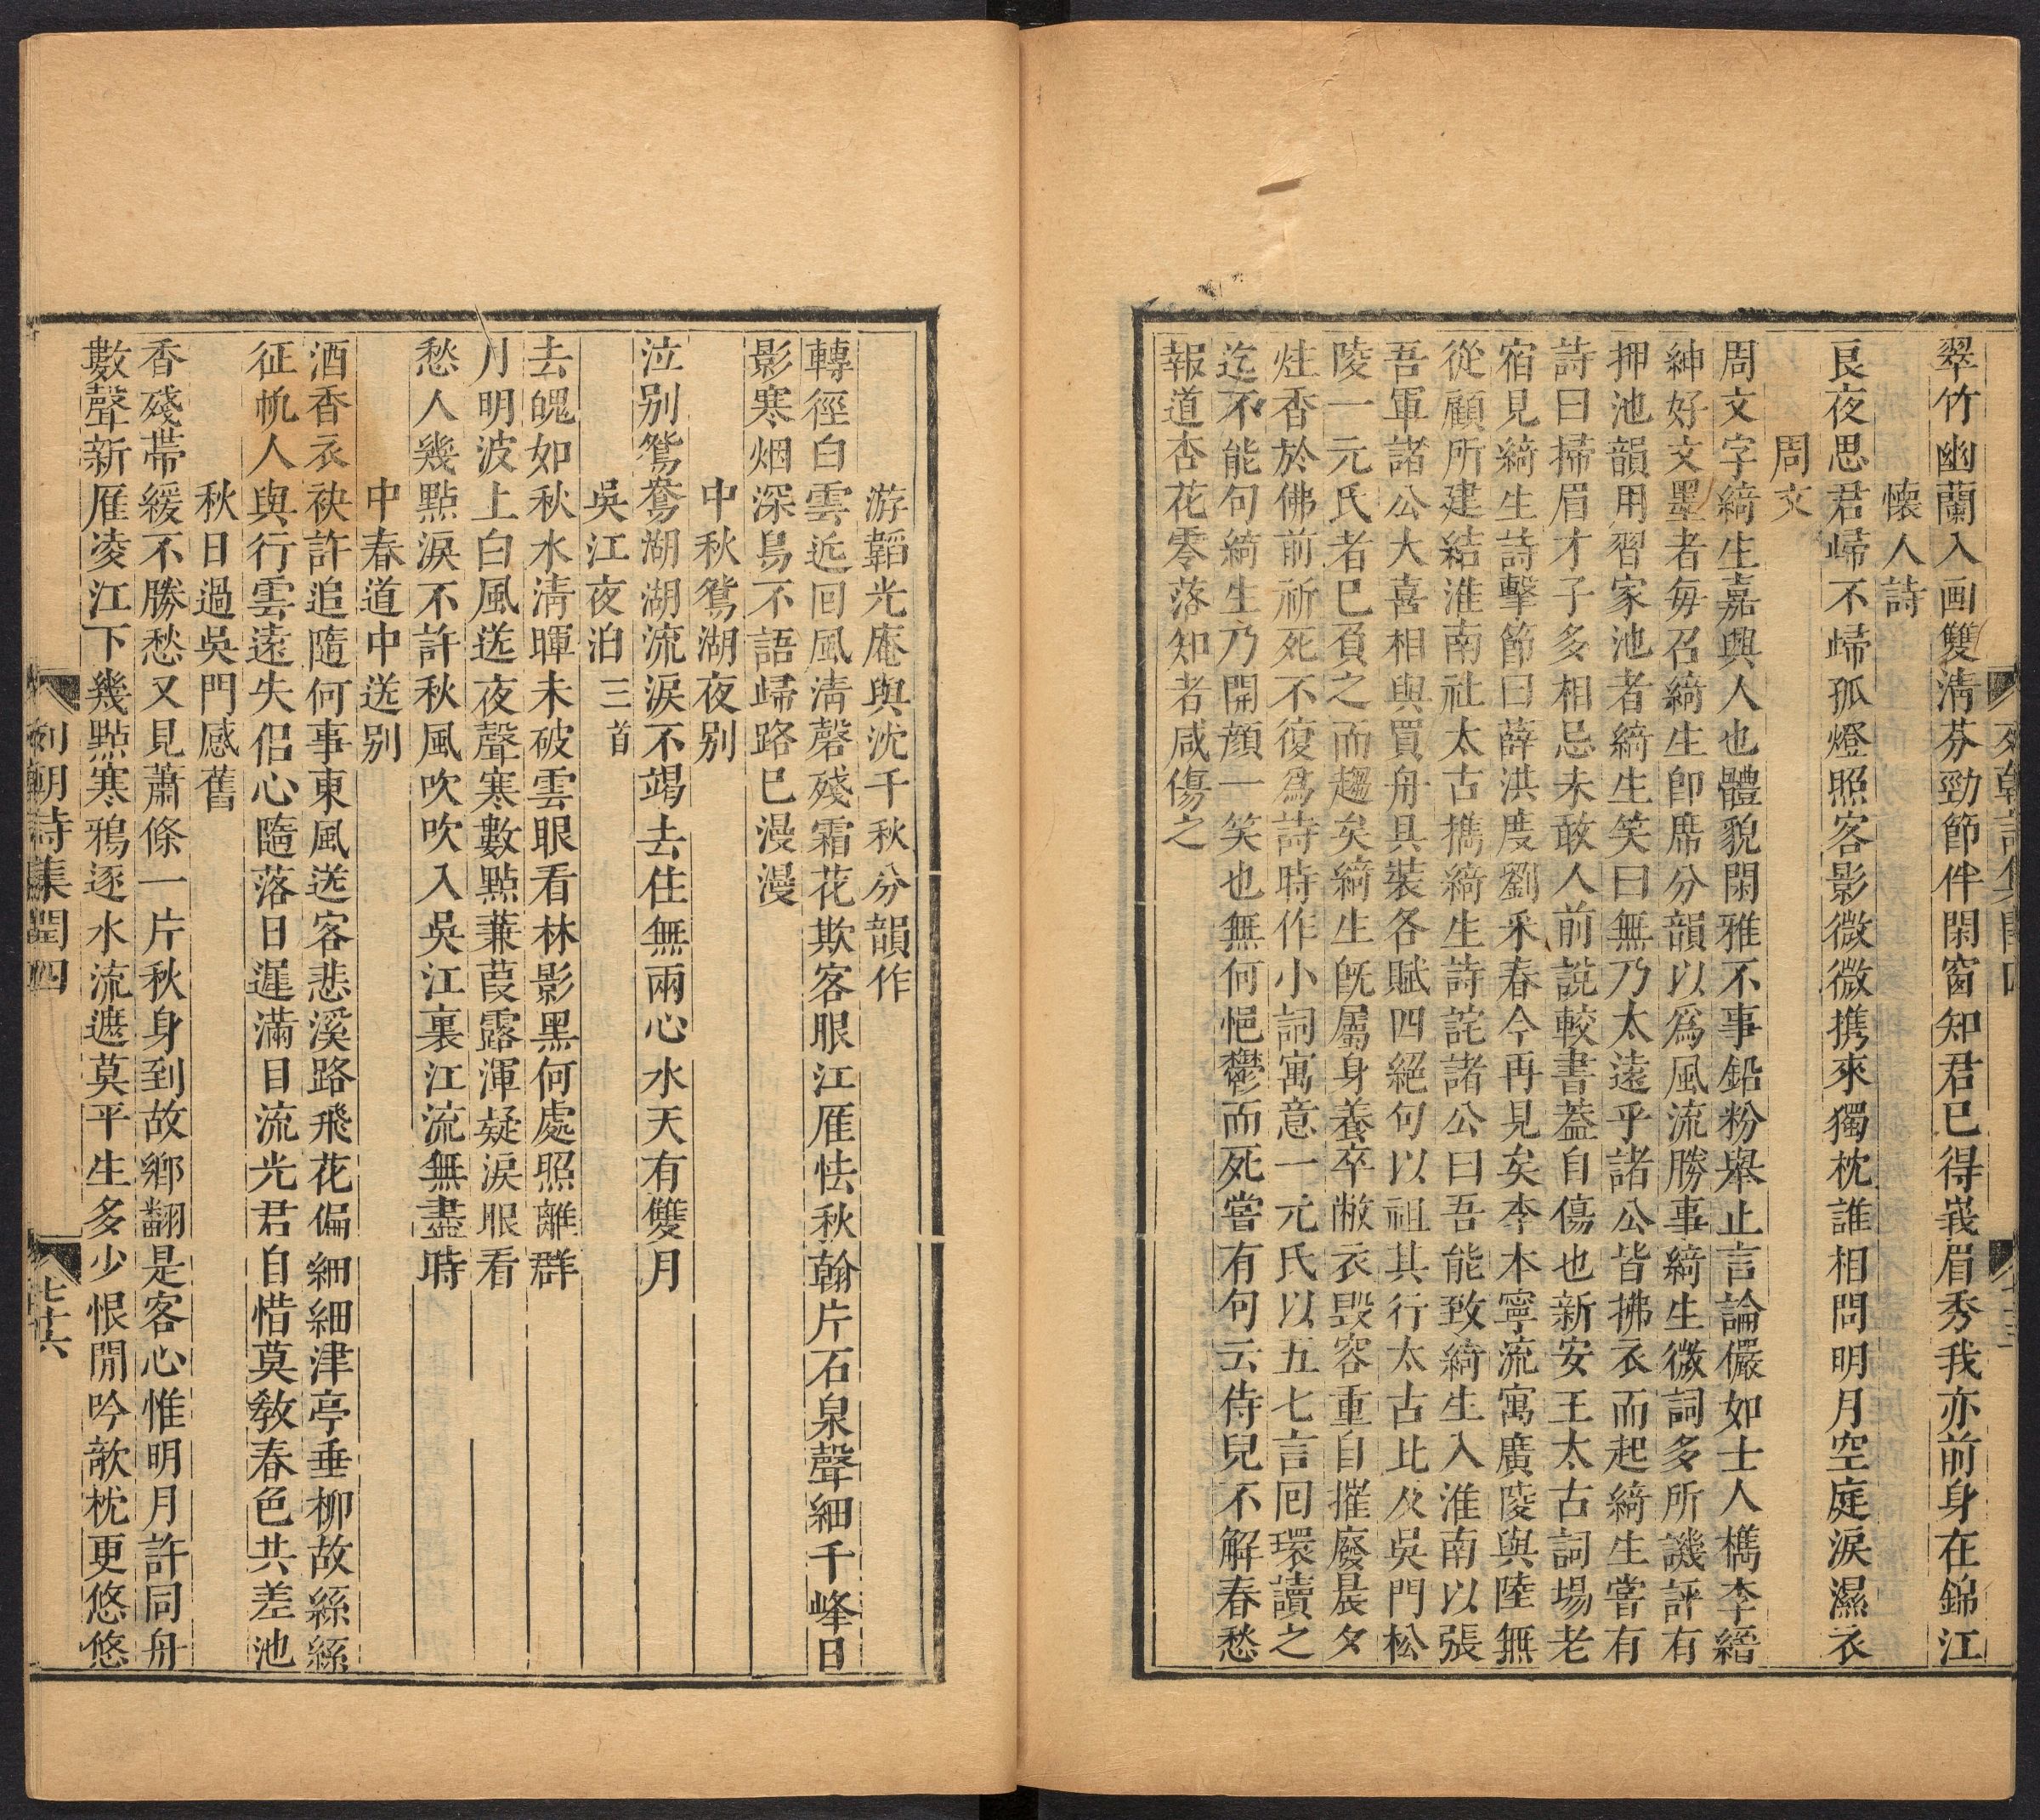 翠竹幽蘭入画雙清芬勁節伴閑窗知君已得峩眉秀我亦前身在錦江
懷人詩
良夜思君歸不歸孤燈照客影微微携來獨枕誰相問明月空庭淚濕衣
周文
周文字綺生嘉興人也體貌閑雅不事鉛粉舉止言論儼如士人檇李縉
紳好文墨者每召綺生卽席分韻以爲風流勝事綺生微詞多所譏評有
押池韻用習家池者綺生笑曰無乃太遠乎諸公皆拂衣而起綺生嘗有
詩曰掃眉才子多相忌未敢人前說較書葢自傷也新安王太古詞場老
宿見綺生詩擊節曰薛洪度劉采春今再見矣李本寧流寓廣陵與陸無
從顧所建結淮南社太古攜綺生詩詫諸公曰吾能致綺生入淮南以張
吾軍諸公大喜相與買舟具裝各賦四絕句以祖其行太古比及吳門松
陵一元氏者已負之而趨矣綺生旣屬身養卒敝衣毀容重自摧廢晨夕
炷香於佛前祈死不復爲詩時作小詞寓意一元氏以五七言回環讀之
迄不能句綺生乃開顔一笑也無何悒鬱而死嘗有句云侍兒不解春愁
報道杏花零落知者咸傷之
游韜光庵與沈千秋分韻作
轉徑白雲近回風清磬殘霜花欺客眼江雁怯秋翰片石泉聲細千峰日
影寒烟深鳥不語歸路已漫漫
中秋鴛湖夜別
泣別鴛鴦湖湖流淚不竭去住無兩心水天有雙月
吳江夜泊三首
去魄如秋水清暉未破雲眼看林影黑何處照離群
月明波上白風送夜聲寒數點蒹葭露渾疑淚眼看
愁人幾點淚不許秋風吹吹入吳江裏江流無盡時
中春道中送別
酒香衣袂許追隨何事東風送客悲溪路飛花偏細細津亭垂柳故絲絲
征帆人與行雲遠失侶心隨落日遲滿目流光君自惜莫敎春色共差池
秋日過吳門感舊
香殘帶緩不勝愁又見蕭條一片秋身到故鄉翻是客心惟明月許同舟
數聲新雁凌江下幾點寒鴉逐水流遮莫平生多少恨閒吟欹枕更悠悠
列朝詩集閏四
七十六